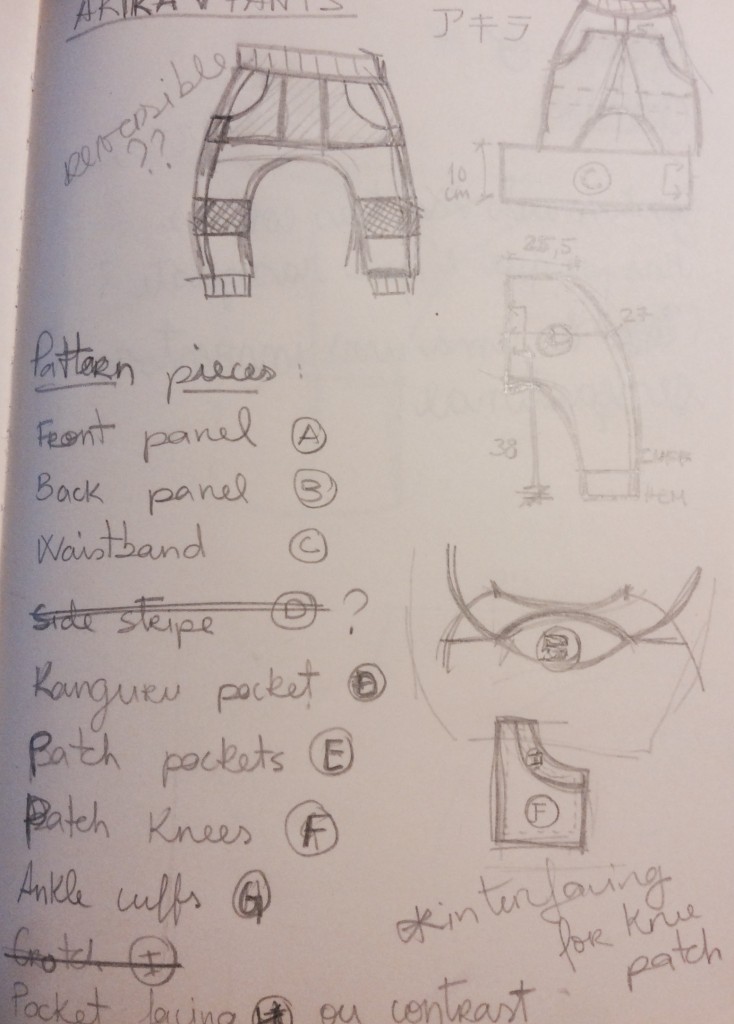 AKIRA PANTS
アキラ
reversible
??
10
cm
C
25,5
27
38
HEM
Pattern pieces:
Front panel A
Back panel B
Waistband C
Side stripe D ?
Kanguru pocket D
Patch pockets E
Patch Knees F
Ankle cuffs G
Crotch I
F
*interfacing
for knee
patch
Pocket facing ou contrast